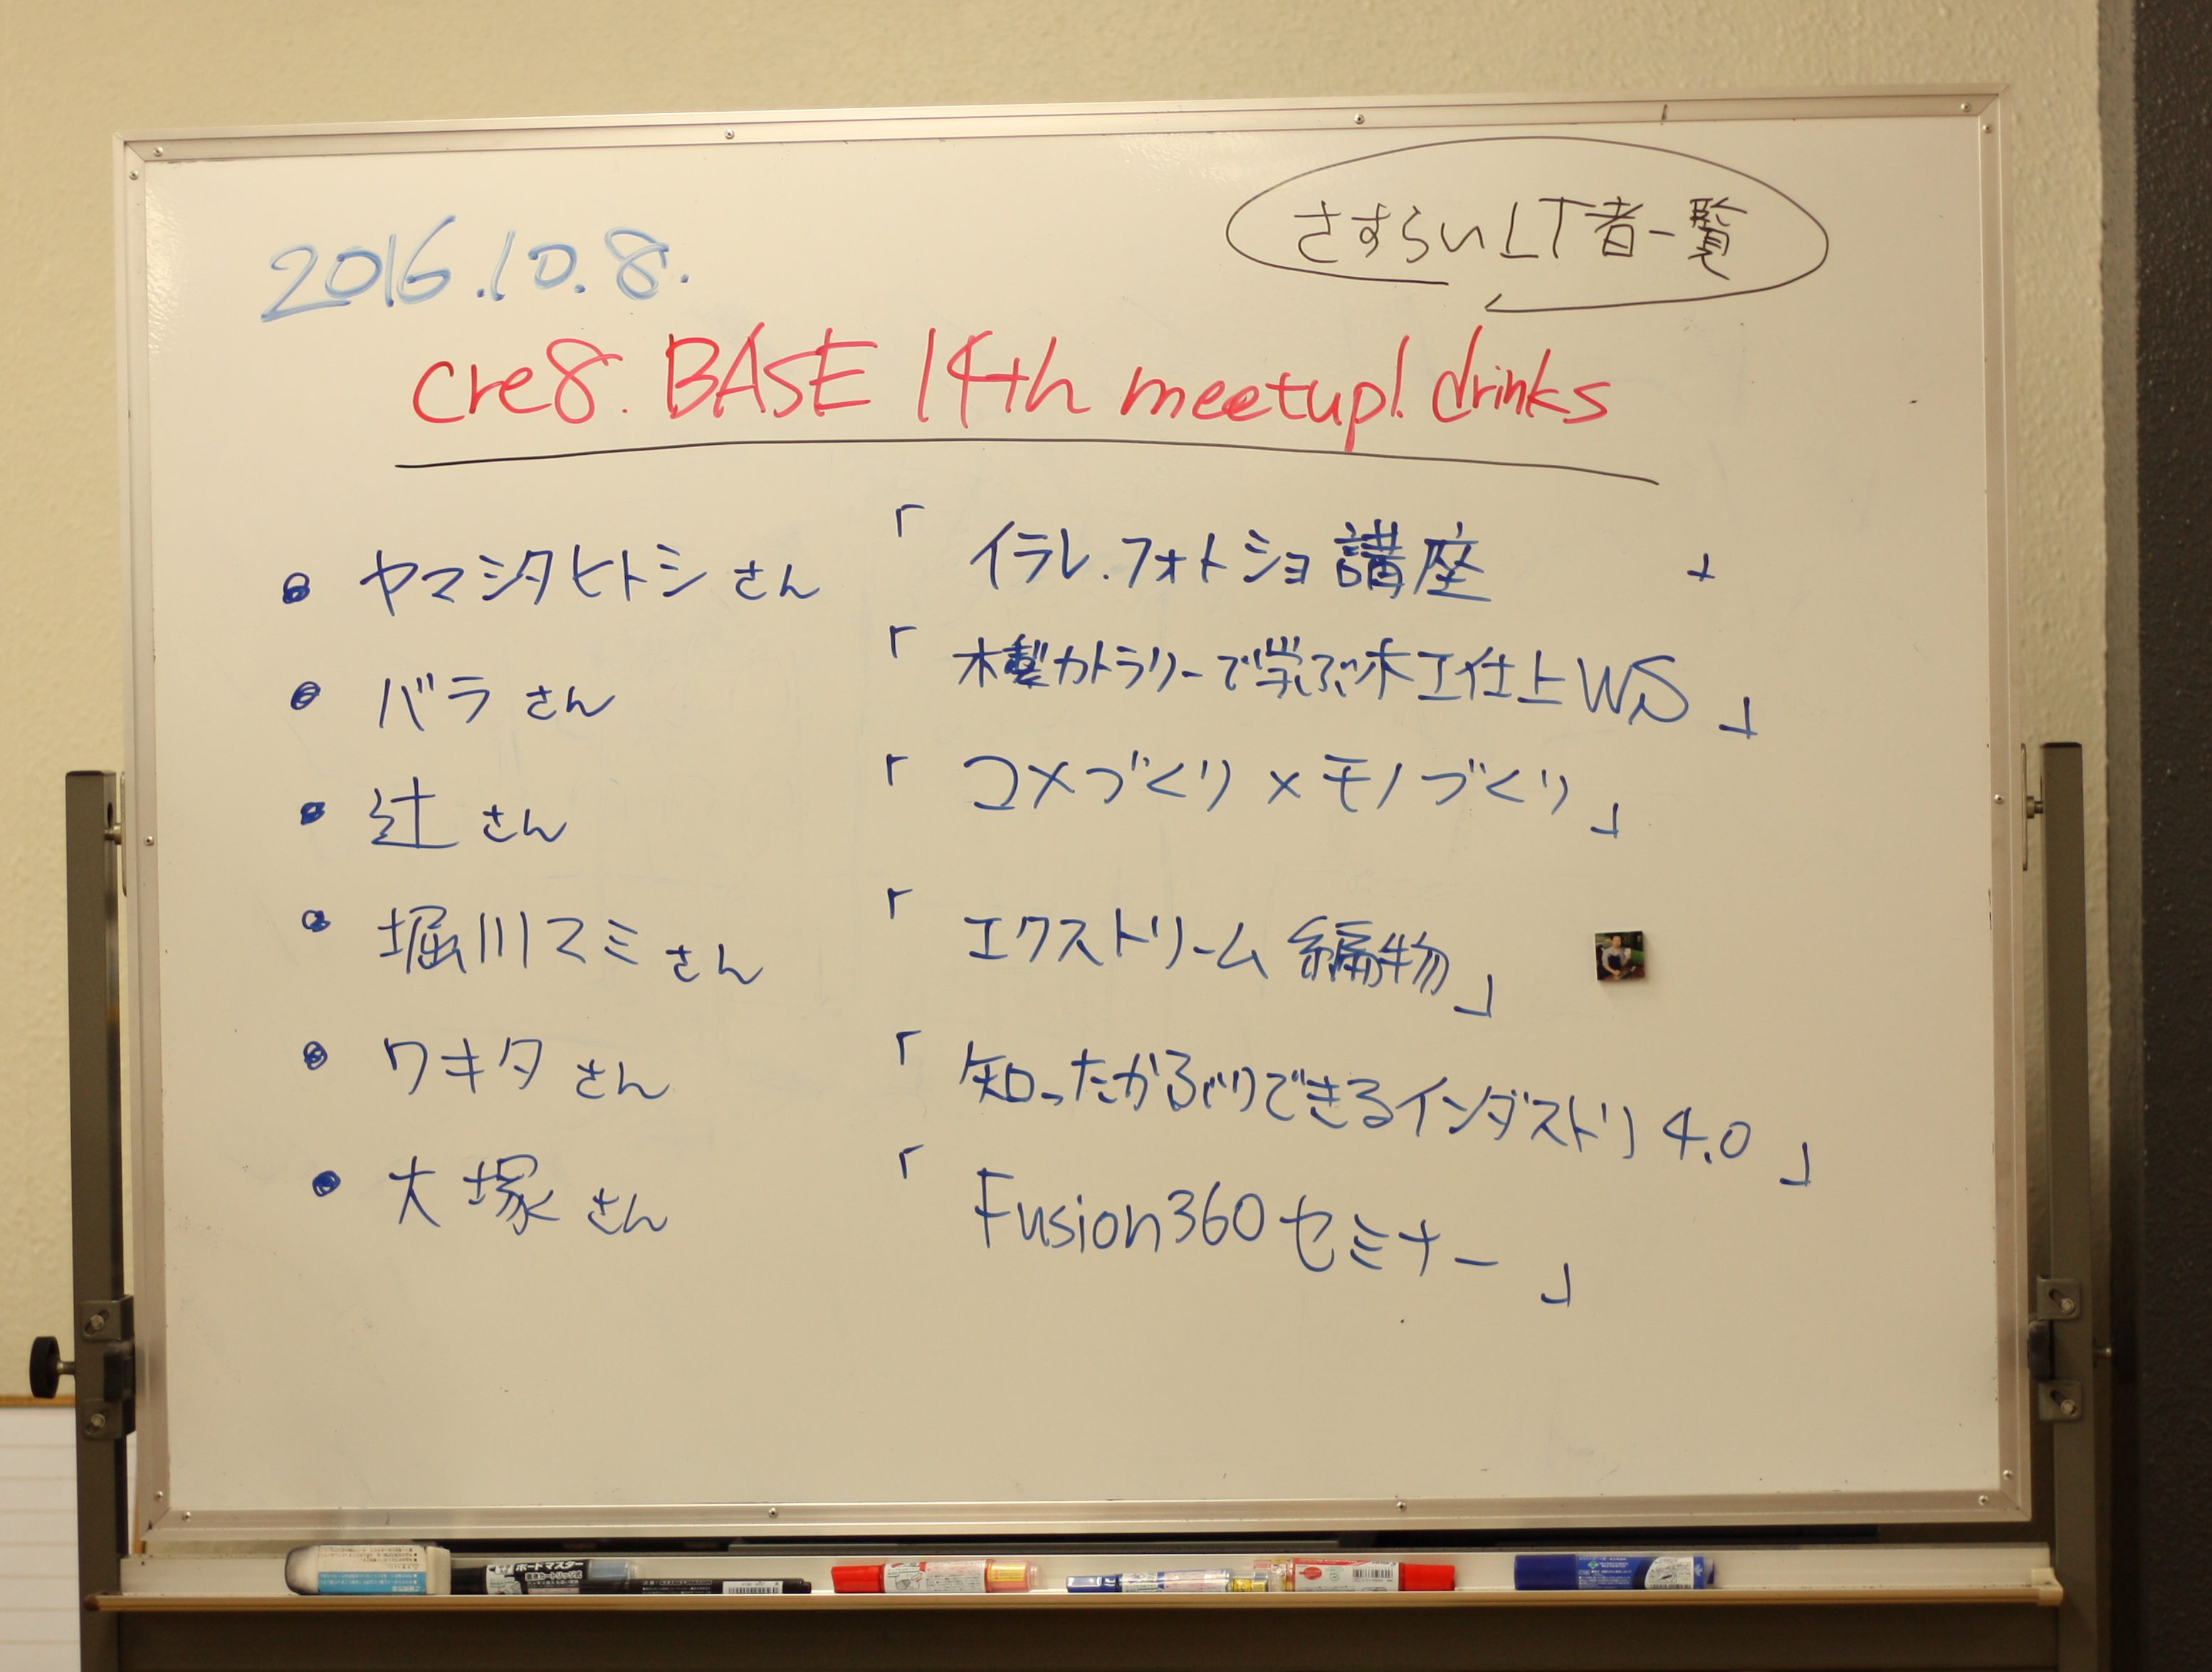 さすらいLT者一覧
2016.10.8.
cre8.BASE 14th meetup! drinks
● ヤマシタヒトシさん 「イラレ.フォトショ講座」
● バラさん 「木製カトラリーで学ぶ木工仕上WS」
● 辻さん 「コメづくり×モノづくり」
● 堀川マミさん 「エクストリーム編物」
● ワキタさん 「知ったかぶりできるインダストリ4.0」
● 大塚さん 「Fusion360セミナー」
ボードマスター